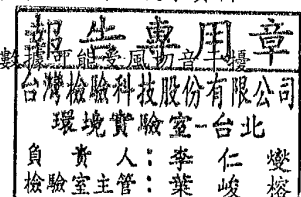 報告專用章
數據可能受風切音干擾
台灣檢驗科技股份有限公司
環境實驗室-台北
負責人：李仁燮
檢驗室主管：葉峻榕